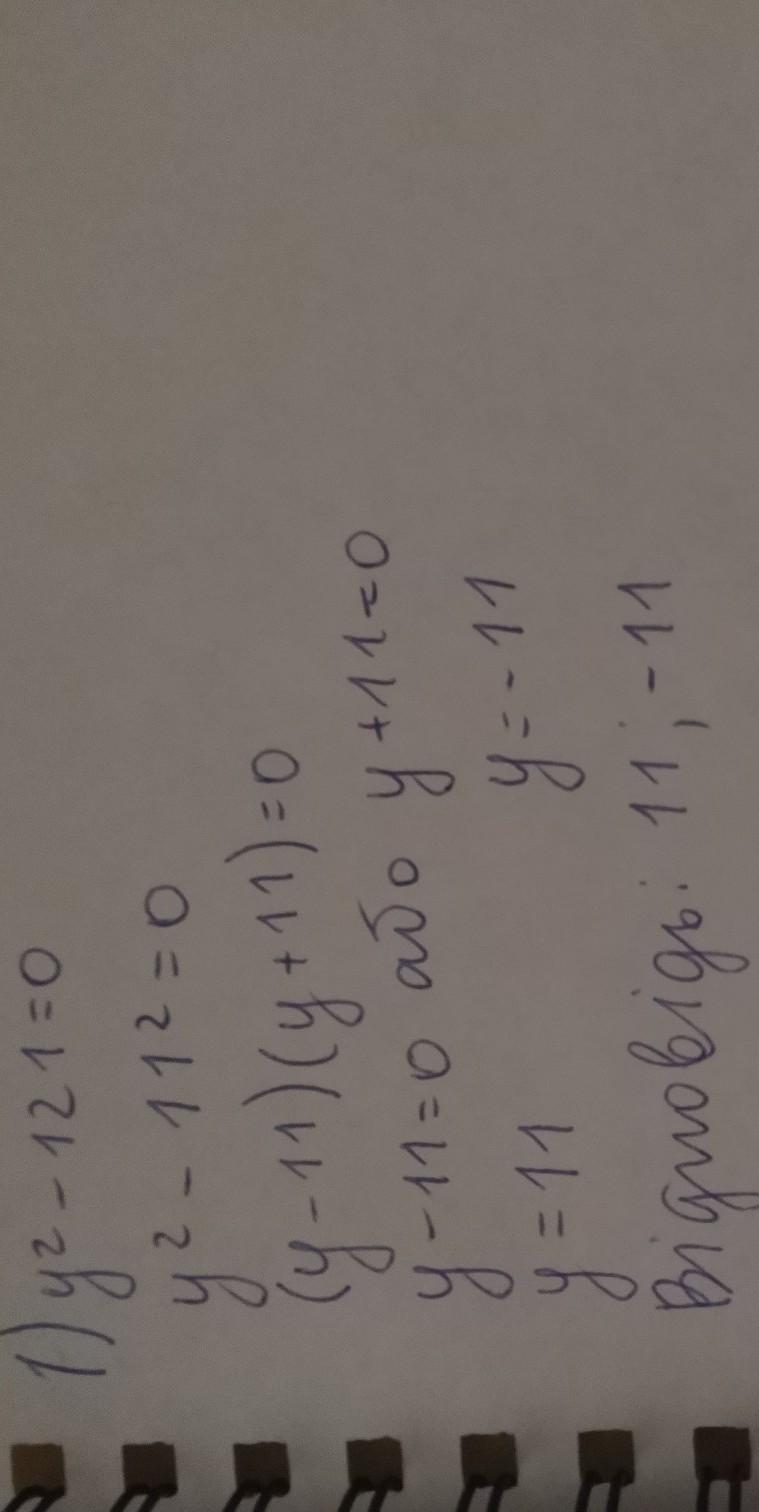 1) y² - 121 = 0
y² - 11² = 0
(y - 11)(y + 11) = 0
y - 11 = 0 або y + 11 = 0
y = 11 y = - 11
Відповідь: 11; -11